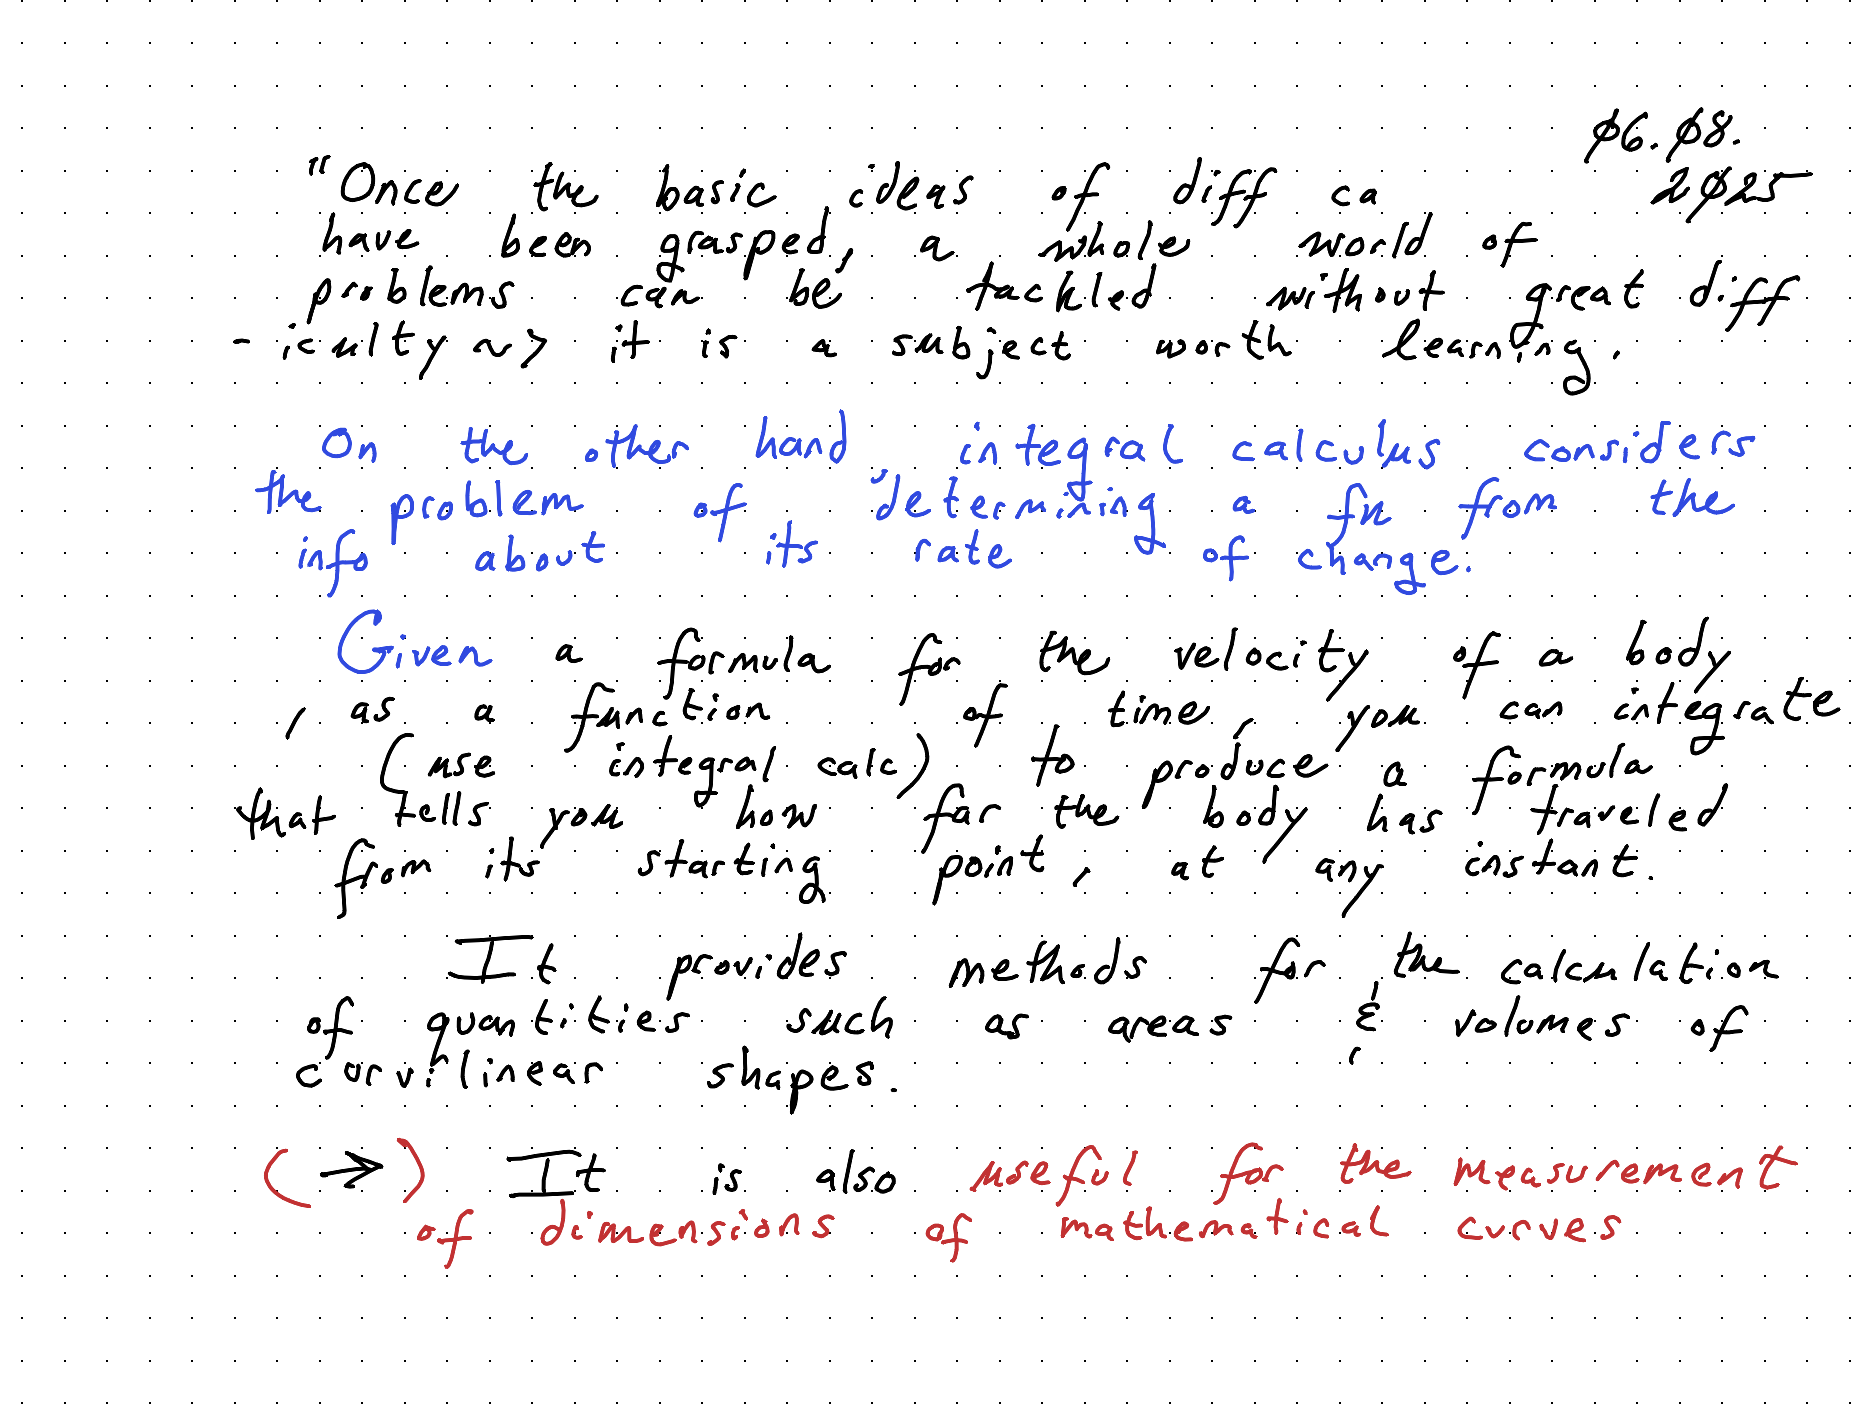 06.08.
2025
"Once the basic ideas of diff ca
have been grasped, a whole world of
problems can be tackled without great diff
-iculty ~> it is a subject worth learning.
On the other hand, integral calculus considers
the problem of determining a fn from the
info about its rate of change.
Given a formula for the velocity of a body
, as a function of time, you can integrate
(use integral calc) to produce a formula
that tells you how far the body has traveled
from its starting point, at any instant.
It provides methods for the calculation
of quantities such as areas & volumes of
corvilinear shapes.
(→) It is also useful for the measurement
of dimensions of mathematical curves